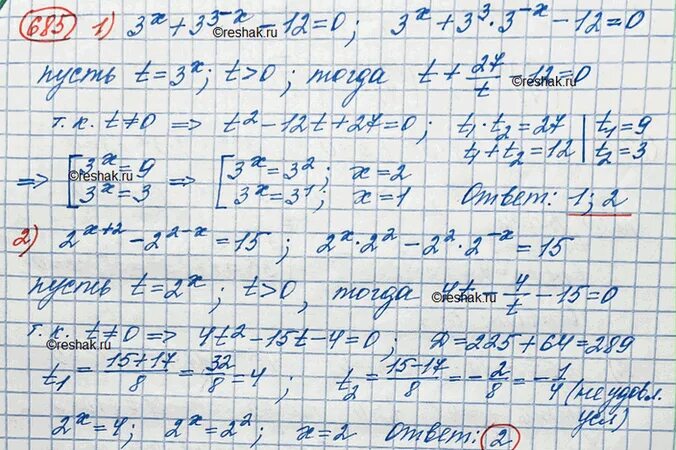 685 1) 3ˣ + 3³⁻ˣ - 12 = 0; 3ˣ + 3³ · 3⁻ˣ - 12 = 0
©reshak.ru
пусть t = 3ˣ; t > 0; тогда t + 27/t - 12 = 0
©reshak.ru
т.к. t ≠ 0 ⇒ t² - 12t + 27 = 0; t₁ · t₂ = 27 | t₁ = 9
t₁ + t₂ = 12 | t₂ = 3
⇒ [3ˣ = 9 ⇒ [3ˣ = 3²; x = 2
©reshak.ru
3ˣ = 3 3ˣ = 3¹; x = 1 Ответ: 1; 2
2) 2ˣ⁺² - 2²⁻ˣ = 15; 2ˣ · 2² - 2² · 2⁻ˣ = 15
пусть t = 2ˣ; t > 0, тогда 4t - 4/t - 15 = 0
©reshak.ru
т.к. t ≠ 0 ⇒ 4t² - 15t - 4 = 0; D = 225 + 64 = 289
©reshak.ru
t₁ = (15+17)/8 = 32/8 = 4; t₂ = (15-17)/8 = -2/8 = -1/4 (не удовл.
усл)
2ˣ = 4; 2ˣ = 2²; x = 2 Ответ: 2